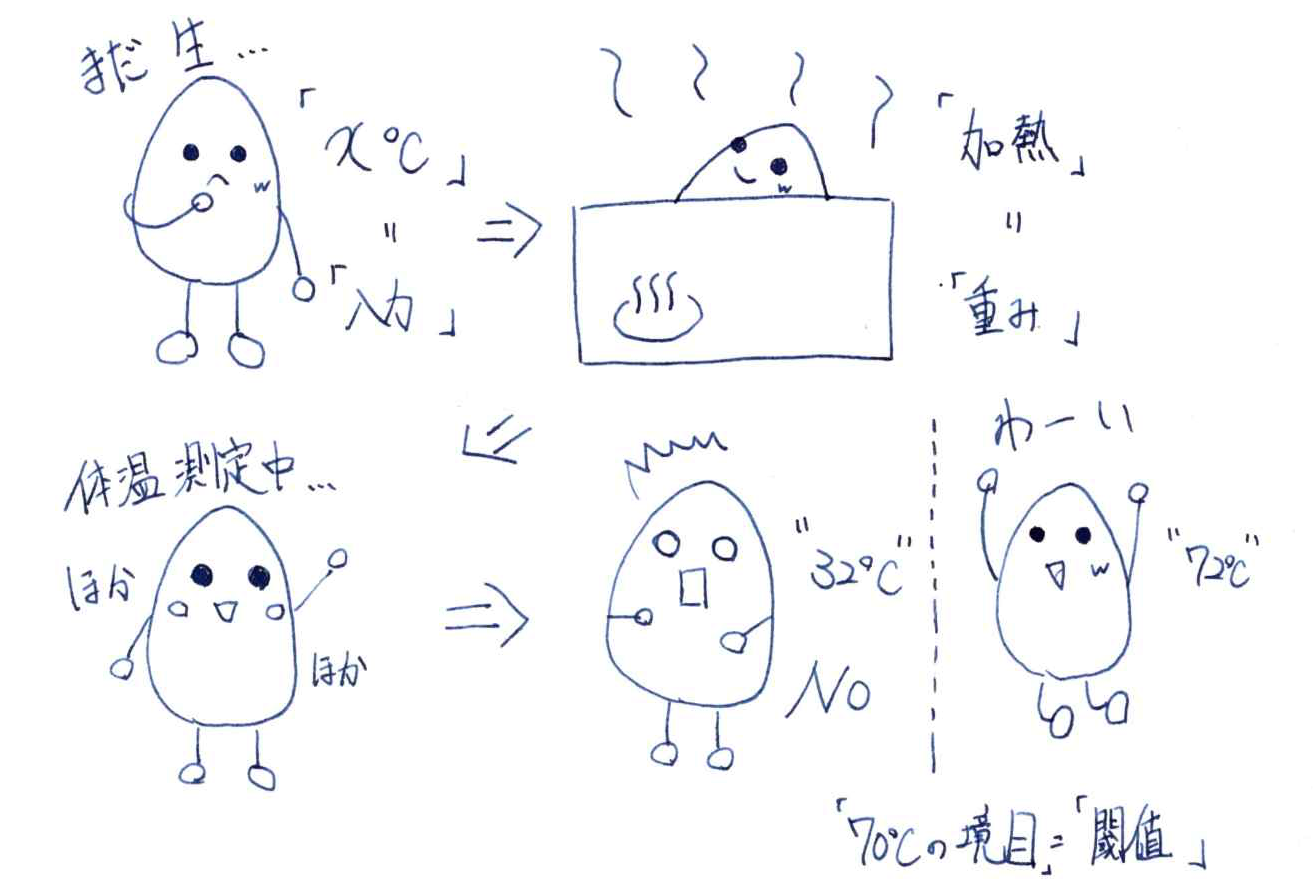 まだ 生…
「x℃」
＝
「入力」
⇒
「加熱」
＝
「重み」
体温測定中…
ほか
ほか
⇒
"32℃"
NO
わーい
"72℃"
「70℃の境目」=「閾値」